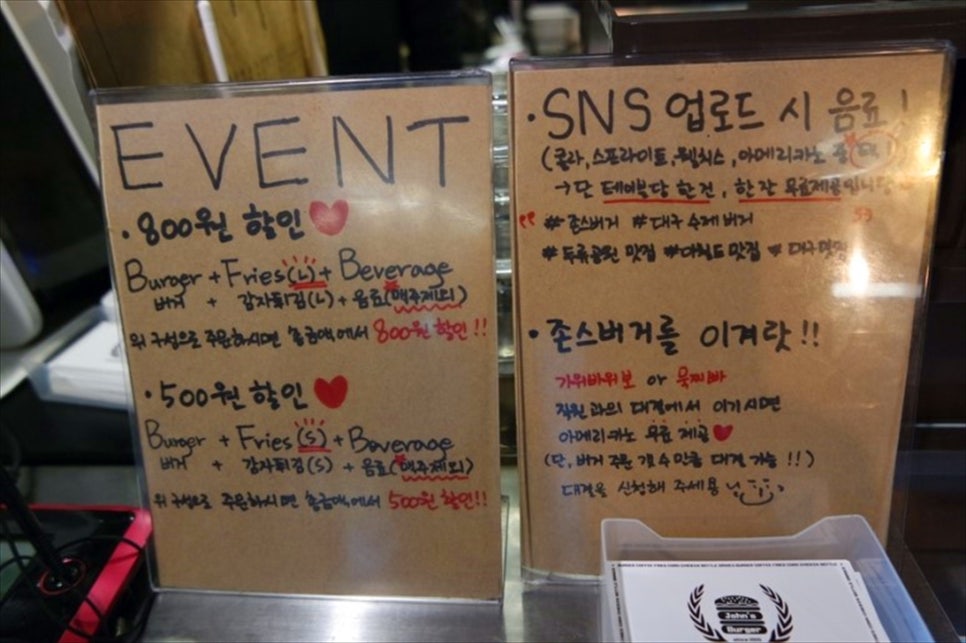 EVENT
· 800원 할인
Burger + Fries(L) + Beverage
버거 + 감자튀김(L) + 음료(맥주제외)
위 구성으로 주문하시면 총금액에서 800원 할인!!
· 500원 할인
Burger + Fries(S) + Beverage
버거 + 감자튀김(S) + 음료(맥주제외)
위 구성으로 주문하시면 총금액에서 500원 할인!!
· SNS 업로드 시 음료!
(콜라, 스프라이트, 웰치스, 아메리카노
→ 단 테이블당 한 건, 한 잔 무료제공입니다
# 존스버거 # 대구 수제 버거
# 두류공원 맛집 # 이월드 맛집 # 대구맛집
· 존스버거를 이겨랏!!
가위바위보 or 묵찌빠
직원과의 대결에서 이기시면
아메리카노 무료 제공
(단, 버거 주문 갯수만큼 대결 가능!!)
대결을 신청해 주세용
John's
Burger